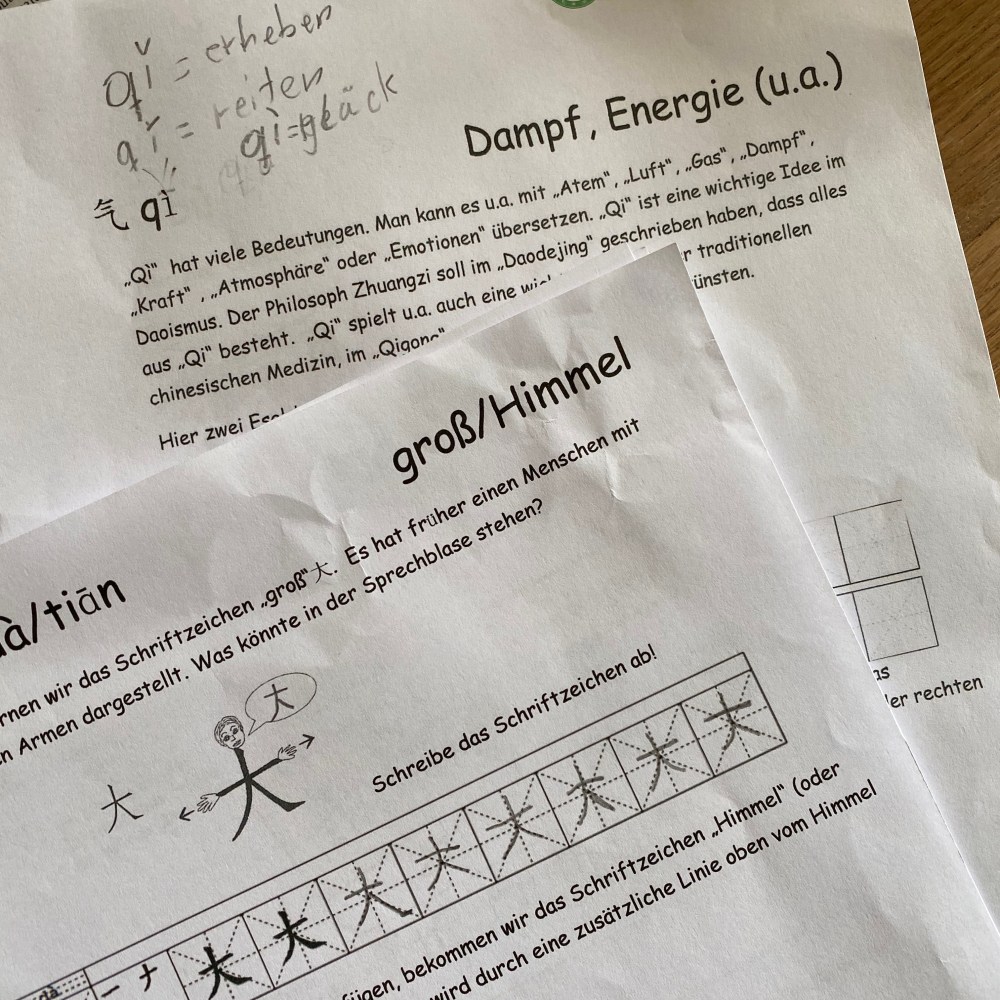 qǐ = erheben
qí = reiten
qì = glück
气 qì
Dampf, Energie (u.a.)
„Qì“ hat viele Bedeutungen. Man kann es u.a. mit „Atem“, „Luft“, „Gas“, „Dampf“,
„Kraft“, „Atmosphäre“ oder „Emotionen“ übersetzen. „Qi“ ist eine wichtige Idee im
Daoismus. Der Philosoph Zhuangzi soll im „Daodejing“ geschrieben haben, dass alles
aus „Qi“ besteht. „Qi“ spielt u.a. auch eine traditionellen
chinesischen Medizin, im „Qigong“ ünsten.
Hier zwei
der rechten
groß/Himmel
dà/tiān
rnen wir das Schriftzeichen „groß“大. Es hat früher einen Menschen mit
n Armen dargestellt. Was könnte in der Sprechblase stehen?
大
大
大
Schreibe das Schriftzeichen ab!
dà 一 ナ 大 大 大 大 大 大 大 大
fügen, bekommen wir das Schriftzeichen „Himmel“ (oder
wird durch eine zusätzliche Linie oben vom Himmel